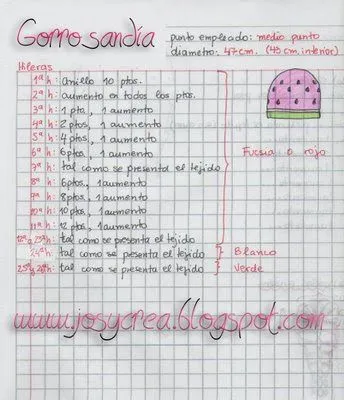 Gorro sandía
punto empleado: medio punto
diametro: 47cm. (43 cm. interior)
Hileras
1ª h: anillo 10 ptos.
2ª h: aumento en todos los ptos.
3ª h: 1 pto, 1 aumento
4ª h: 2 ptos, 1 aumento
5ª h: 4 ptos, 1 aumento
6ª h: 6 ptos, 1 aumento
7ª h: tal como se presenta el tejido
8ª h: 6 ptos, 1 aumento
9ª h: 8 ptos, 1 aumento
10ª h: 10 ptos, 1 aumento
11ª h: 12 ptos, 1 aumento
tal como se presenta el tejido
Fucsia o rojo
24ª h: tal como se presenta el tejido } Blanco
tal como se presenta el tejido } Verde
www.josycrea.blogspot.com